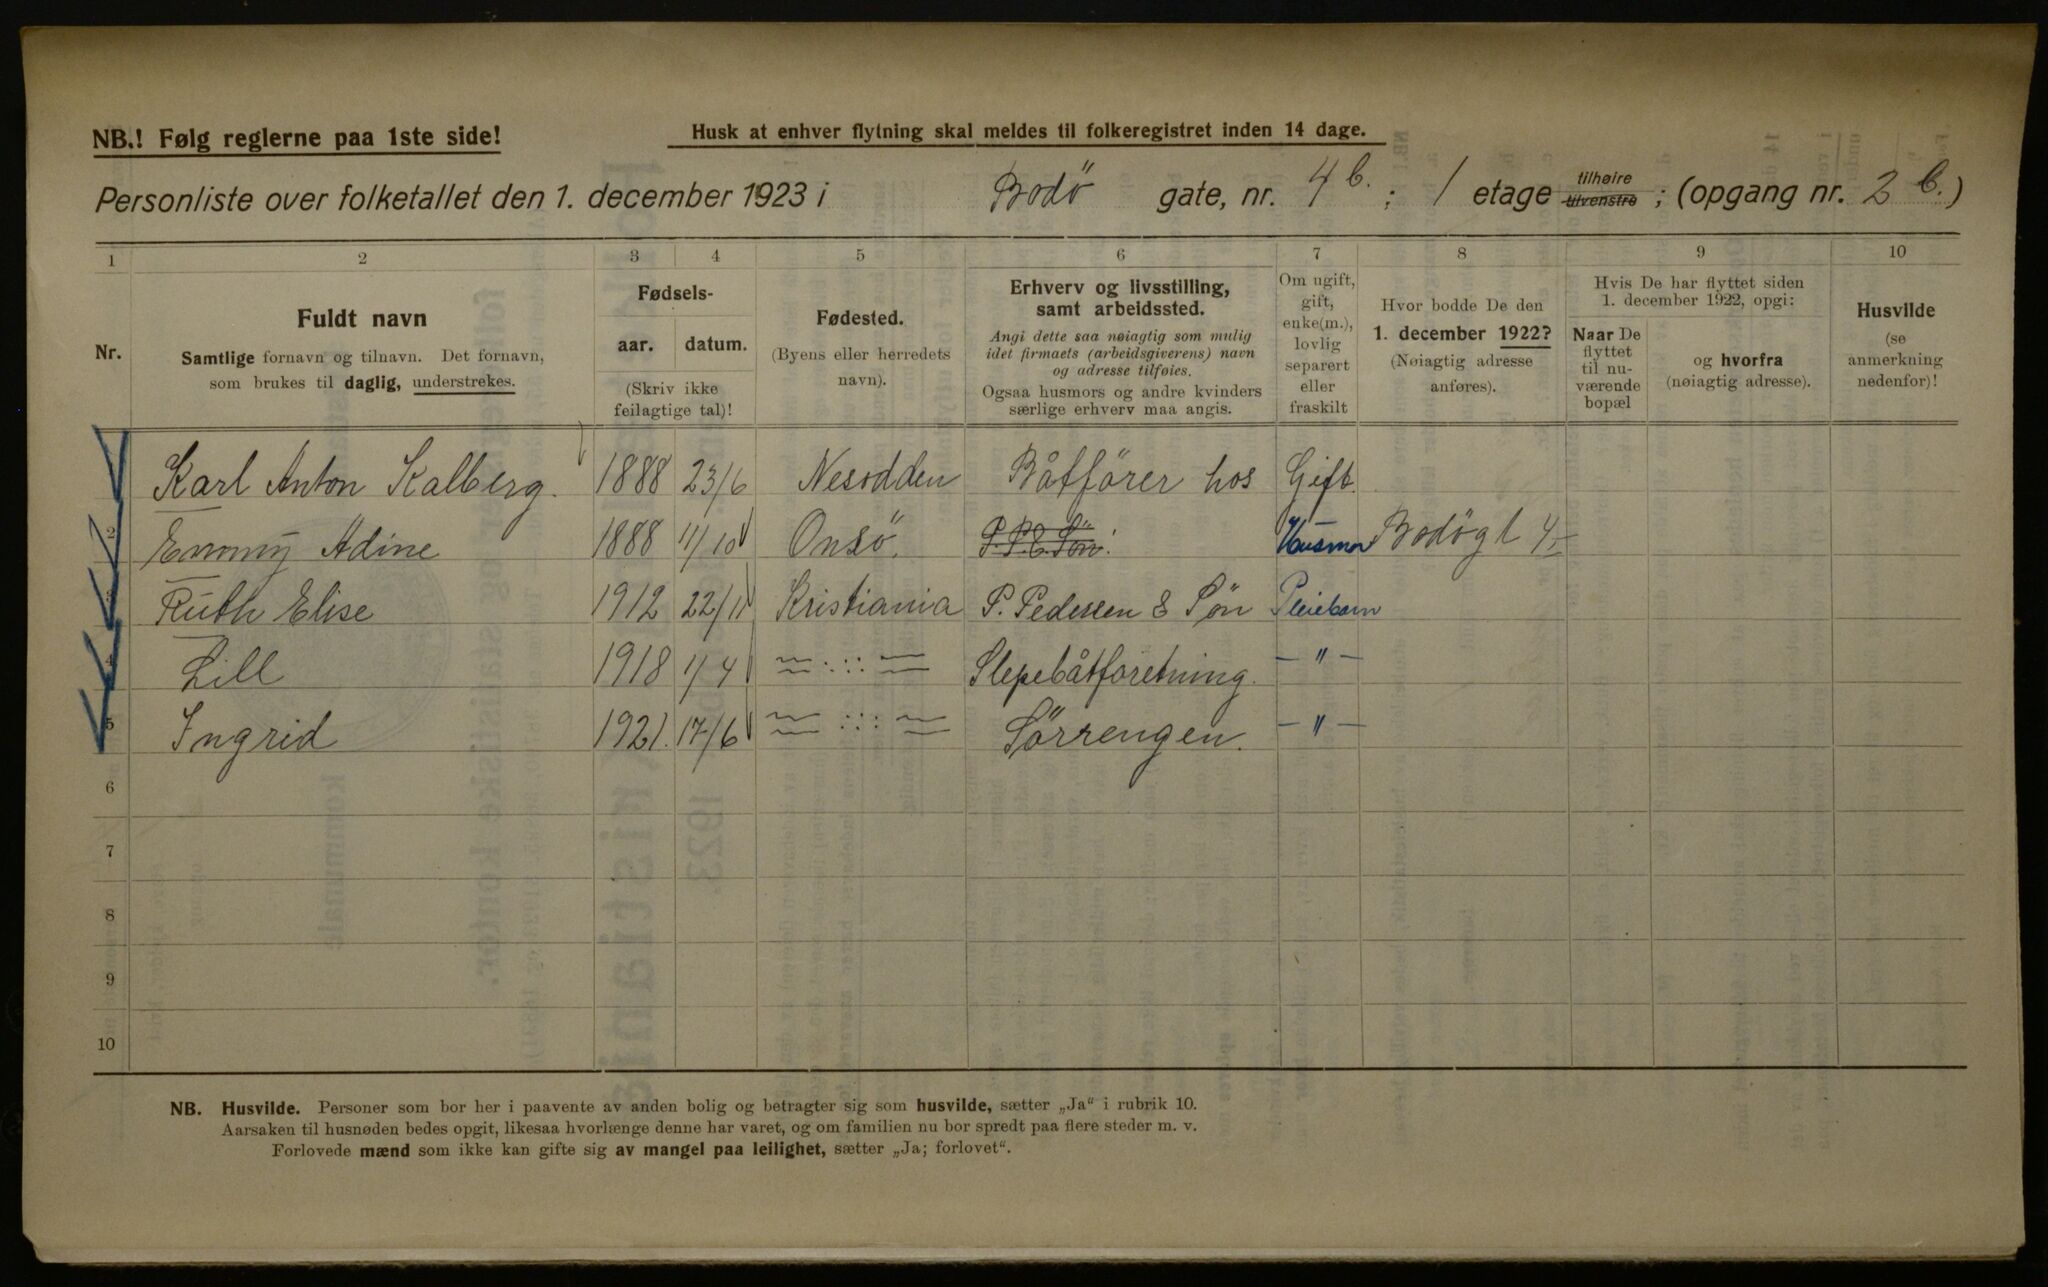 NB.! Følg reglerne paa 1ste side!
Husk at enhver flytning skal meldes til folkeregistret inden 14 dage.
Personliste over folketallet den 1. december 1923 i Bodö gate, nr. 4 b. ; 1 etage tilhøire tilvenstre ; (opgang nr. 2 b.)
1 2 3 4 5 6 7 8 9 10
Nr.
Fuldt navn
Samtlige fornavn og tilnavn. Det fornavn,
som brukes til daglig, understrekes.
Fødsels-
aar. datum.
(Skriv ikke
feilagtige tal)!
Fødested.
(Byens eller herredets
navn).
Erhverv og livsstilling,
samt arbeidssted.
Angi dette saa nøiagtig som mulig
idet firmaets (arbeidsgiverens) navn
og adresse tilføies.
Ogsaa husmors og andre kvinders
særlige erhverv maa angis.
Om ugift,
gift,
enke(m.),
lovlig
separert
eller
fraskilt
Hvor bodde De den
1. december 1922?
(Nøiagtig adresse
anføres).
Hvis De har flyttet siden
1. december 1922, opgi:
Naar De
flyttet
til nu-
værende
bopæl
og hvorfra
(nøiagtig adresse).
Husvilde
(se
anmerkning
nedenfor)!
Karl Anton Kalberg. 1888 23/6 Nesodden Båtförer hos Gift.
2 Emmy Adine 1888 11/10 Onsö. P. P. & Sön. Husmor Bodögt 4
3 Ruth Elise 1912 22/11 Kristiania P. Pedersen & Sön Pleiebarn
4 Lill 1918 1/4 Slepebåtforetning. — " —
5 Ingrid 1921. 17/6 Sörrengen. — " —
6
7
8
9
10
NB. Husvilde. Personer som bor her i paavente av anden bolig og betragter sig som husvilde, sætter „Ja“ i rubrik 10.
Aarsaken til husnøden bedes opgit, likesaa hvorlænge denne har varet, og om familien nu bor spredt paa flere steder m. v.
Forlovede mænd som ikke kan gifte sig av mangel paa leilighet, sætter „Ja; forlovet“.